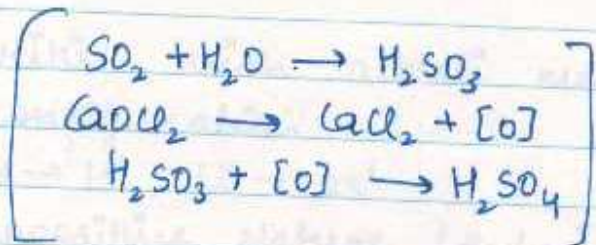 SO₂ + H₂O → H₂SO₃
CaOCl₂ → CaCl₂ + [O]
H₂SO₃ + [O] → H₂SO₄